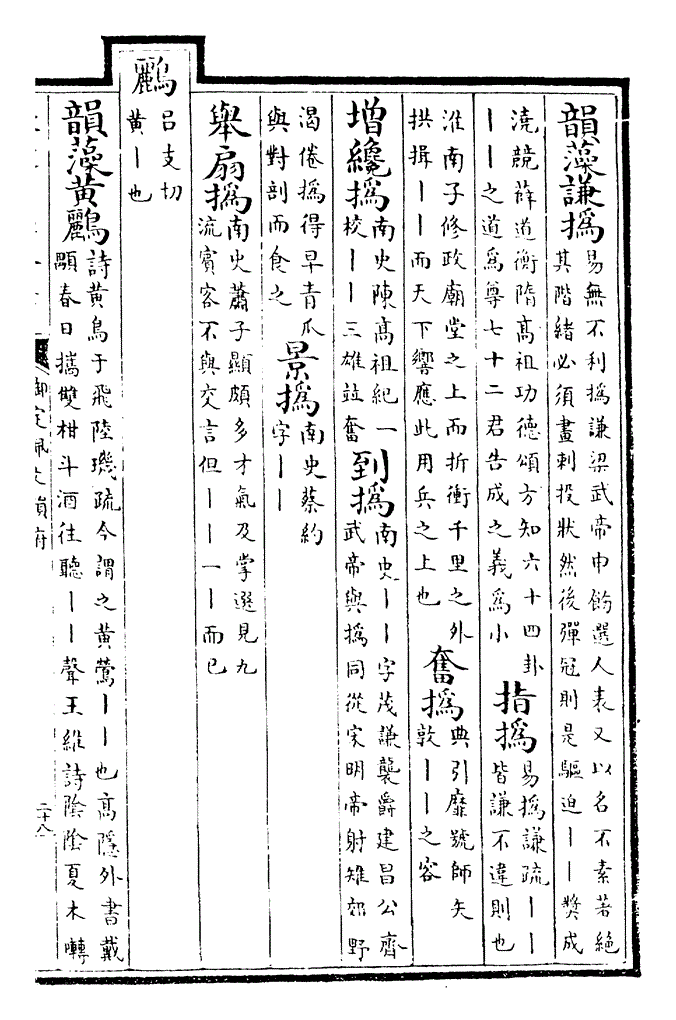 韻藻謙撝
易無不利撝謙梁武帝申飭選人表又以名不素著絕
其階緒必須畫刺投狀然後彈冠則是驅迫丨丨奬成
澆競薛道衡隋髙祖功德頌方知六十四卦
丨丨之道為尊七十二君告成之義為小
指撝
易撝謙疏丨丨
皆謙不違則也
淮南子修政廟堂之上而折衝千里之外
拱揖丨丨而天下響應此用兵之上也
奮撝
典引靡號師矢
敦丨丨之容
增纔撝
南史陳髙祖紀一
校丨丨三雄竝奮
到撝
南史丨丨字茂謙襲爵建昌公齊
武帝與撝同從宋明帝射雉郊野
渴倦撝得早青瓜
與對剖而食之
景撝
南史蔡約
字丨丨
舉扇撝
南史蕭子顯頗多才氣及掌選見九
流賓客不與交言但丨丨一丨而已
鸝
吕支切
黄丨也
韻藻黄鸝
詩黄鳥于飛陸璣疏今謂之黄鶯丨丨也髙隱外書戴
顒春日攜雙柑斗酒往聽丨丨聲王維詩陰陰夏木囀
御定佩文韻府
二十八